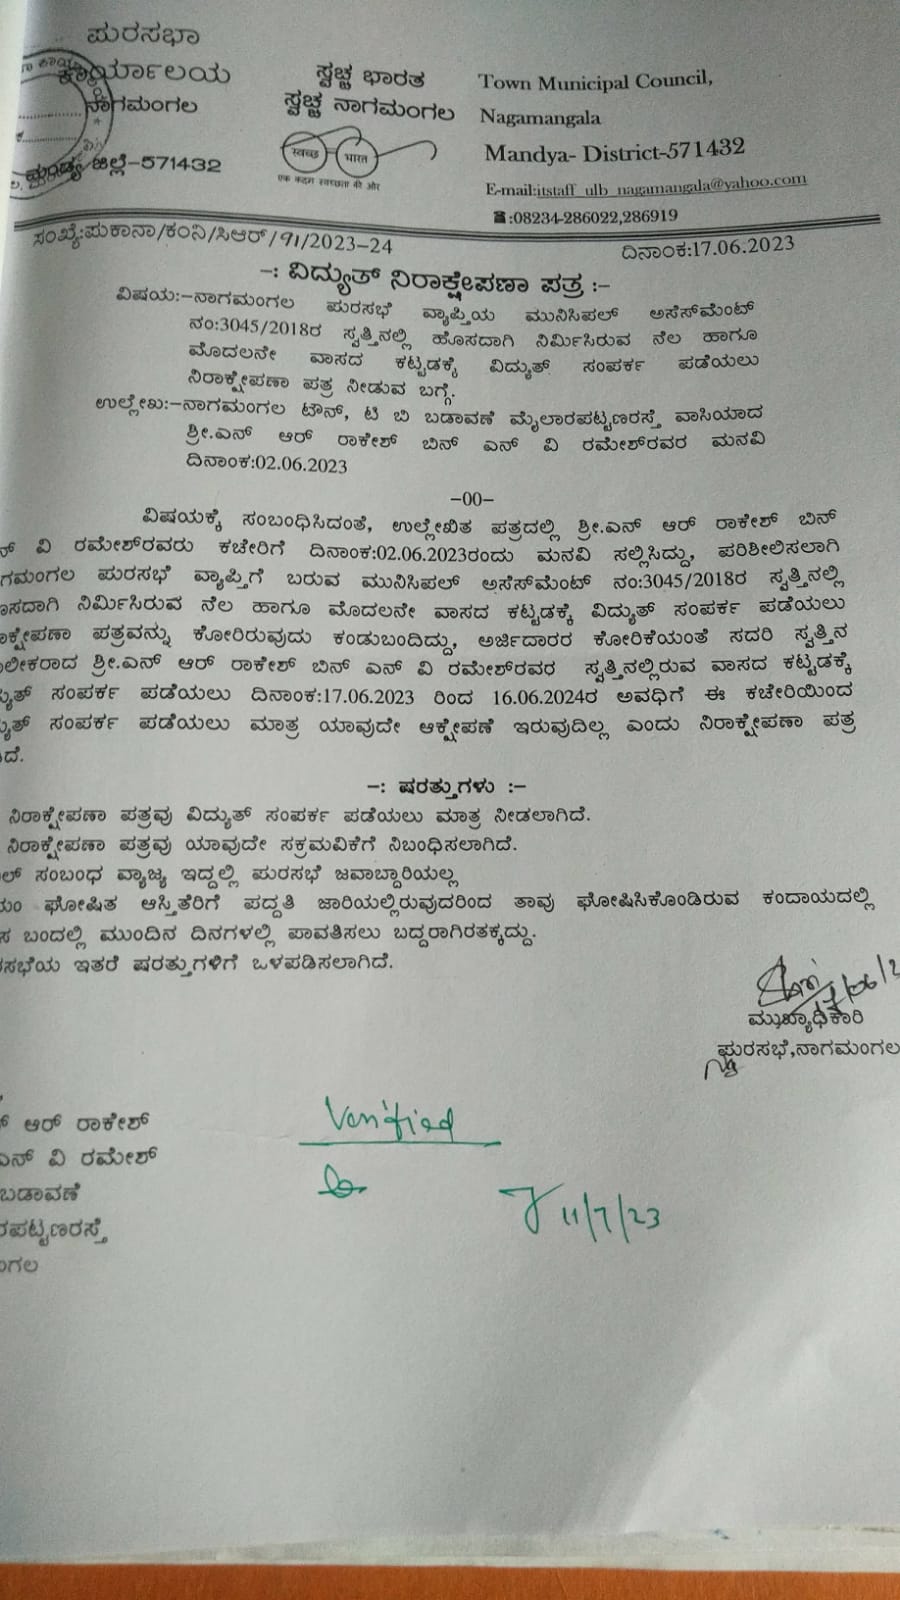 ಪುರಸಭಾ
ಕಾರ್ಯಾಲಯ
ನಾಗಮಂಗಲ
ಮಂಡ್ಯ ಜಿಲ್ಲೆ-571432
ಸ್ವಚ್ಛ ಭಾರತ
ಸ್ವಚ್ಛ ನಾಗಮಂಗಲ
स्वच्छ भारत
एक कदम स्वच्छता की ओर
Town Municipal Council,
Nagamangala
Mandya- District-571432
E-mail:itstaff_ulb_nagamangala@yahoo.com
☎:08234-286022,286919
ಸಂಖ್ಯೆ:ಪುಕಾನಾ/ಕಂನಿ/ಸಿಆರ್/91/2023-24
ದಿನಾಂಕ:17.06.2023
-: ವಿದ್ಯುತ್ ನಿರಾಕ್ಷೇಪಣಾ ಪತ್ರ :-
ವಿಷಯ:-ನಾಗಮಂಗಲ ಪುರಸಭೆ ವ್ಯಾಪ್ತಿಯ ಮುನಿಸಿಪಲ್ ಅಸೆಸ್‌ಮೆಂಟ್
ನಂ:3045/2018ರ ಸ್ವತ್ತಿನಲ್ಲಿ ಹೊಸದಾಗಿ ನಿರ್ಮಿಸಿರುವ ನೆಲ ಹಾಗೂ
ಮೊದಲನೇ ವಾಸದ ಕಟ್ಟಡಕ್ಕೆ ವಿದ್ಯುತ್ ಸಂಪರ್ಕ ಪಡೆಯಲು
ನಿರಾಕ್ಷೇಪಣಾ ಪತ್ರ ನೀಡುವ ಬಗ್ಗೆ.
ಉಲ್ಲೇಖ:-ನಾಗಮಂಗಲ ಟೌನ್, ಟಿ ಬಿ ಬಡಾವಣೆ ಮೈಲಾರಪಟ್ಟಣರಸ್ತೆ ವಾಸಿಯಾದ
ಶ್ರೀ.ಎನ್ ಆರ್ ರಾಕೇಶ್ ಬಿನ್ ಎನ್ ವಿ ರಮೇಶ್‌ರವರ ಮನವಿ
ದಿನಾಂಕ:02.06.2023
-00-
ವಿಷಯಕ್ಕೆ ಸಂಬಂಧಿಸಿದಂತೆ, ಉಲ್ಲೇಖಿತ ಪತ್ರದಲ್ಲಿ ಶ್ರೀ.ಎನ್ ಆರ್ ರಾಕೇಶ್ ಬಿನ್
ನ್ ವಿ ರಮೇಶ್‌ರವರು ಕಚೇರಿಗೆ ದಿನಾಂಕ:02.06.2023ರಂದು ಮನವಿ ಸಲ್ಲಿಸಿದ್ದು, ಪರಿಶೀಲಿಸಲಾಗಿ
ಗಮಂಗಲ ಪುರಸಭೆ ವ್ಯಾಪ್ತಿಗೆ ಬರುವ ಮುನಿಸಿಪಲ್ ಅಸೆಸ್‌ಮೆಂಟ್ ನಂ:3045/2018ರ ಸ್ವತ್ತಿನಲ್ಲಿ
ಸದಾಗಿ ನಿರ್ಮಿಸಿರುವ ನೆಲ ಹಾಗೂ ಮೊದಲನೇ ವಾಸದ ಕಟ್ಟಡಕ್ಕೆ ವಿದ್ಯುತ್ ಸಂಪರ್ಕ ಪಡೆಯಲು
ಕ್ಷೇಪಣಾ ಪತ್ರವನ್ನು ಕೋರಿರುವುದು ಕಂಡುಬಂದಿದ್ದು, ಅರ್ಜಿದಾರರ ಕೋರಿಕೆಯಂತೆ ಸದರಿ ಸ್ವತ್ತಿನ
ಲೀಕರಾದ ಶ್ರೀ.ಎನ್ ಆರ್ ರಾಕೇಶ್ ಬಿನ್ ಎನ್ ವಿ ರಮೇಶ್‌ರವರ ಸ್ವತ್ತಿನಲ್ಲಿರುವ ವಾಸದ ಕಟ್ಟಡಕ್ಕೆ
ಯುತ್ ಸಂಪರ್ಕ ಪಡೆಯಲು ದಿನಾಂಕ:17.06.2023 ರಿಂದ 16.06.2024ರ ಅವಧಿಗೆ ಈ ಕಚೇರಿಯಿಂದ
ಯುತ್ ಸಂಪರ್ಕ ಪಡೆಯಲು ಮಾತ್ರ ಯಾವುದೇ ಆಕ್ಷೇಪಣೆ ಇರುವುದಿಲ್ಲ ಎಂದು ನಿರಾಕ್ಷೇಪಣಾ ಪತ್ರ
ದೆ.
-: ಷರತ್ತುಗಳು :-
ನಿರಾಕ್ಷೇಪಣಾ ಪತ್ರವು ವಿದ್ಯುತ್ ಸಂಪರ್ಕ ಪಡೆಯಲು ಮಾತ್ರ ನೀಡಲಾಗಿದೆ.
ನಿರಾಕ್ಷೇಪಣಾ ಪತ್ರವು ಯಾವುದೇ ಸಕ್ರಮವಿಕೆಗೆ ನಿಬಂಧಿಸಲಾಗಿದೆ.
ಲ್ ಸಂಬಂಧ ವ್ಯಾಜ್ಯ ಇದ್ದಲ್ಲಿ ಪುರಸಭೆ ಜವಾಬ್ದಾರಿಯಲ್ಲ
ಯಂ ಘೋಷಿತ ಆಸ್ತಿತೆರಿಗೆ ಪದ್ದತಿ ಜಾರಿಯಲ್ಲಿರುವುದರಿಂದ ತಾವು ಘೋಷಿಸಿಕೊಂಡಿರುವ ಕಂದಾಯದಲ್ಲಿ
ಸ ಬಂದಲ್ಲಿ ಮುಂದಿನ ದಿನಗಳಲ್ಲಿ ಪಾವತಿಸಲು ಬದ್ದರಾಗಿರತಕ್ಕದ್ದು.
ಸಭೆಯ ಇತರೆ ಷರತ್ತುಗಳಿಗೆ ಒಳಪಡಿಸಲಾಗಿದೆ.
ಮುಖ್ಯಾಧಿಕಾರಿ
ಪುರಸಭೆ,ನಾಗಮಂಗಲ
ಆರ್ ರಾಕೇಶ್
ಎನ್ ವಿ ರಮೇಶ್
ಬಡಾವಣೆ
ರಪಟ್ಟಣರಸ್ತೆ
ಗಲ
Verified
11/7/23